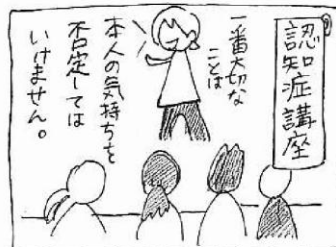 認知症講座
一番大切な
ことは
本人の気持ちを
否定しては
いけません。